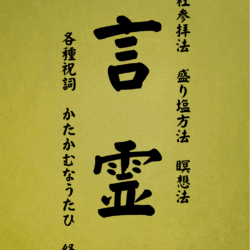 社参拝法　盛り塩方法　瞑想法
言霊
各種祝詞　かたかむなうたひ